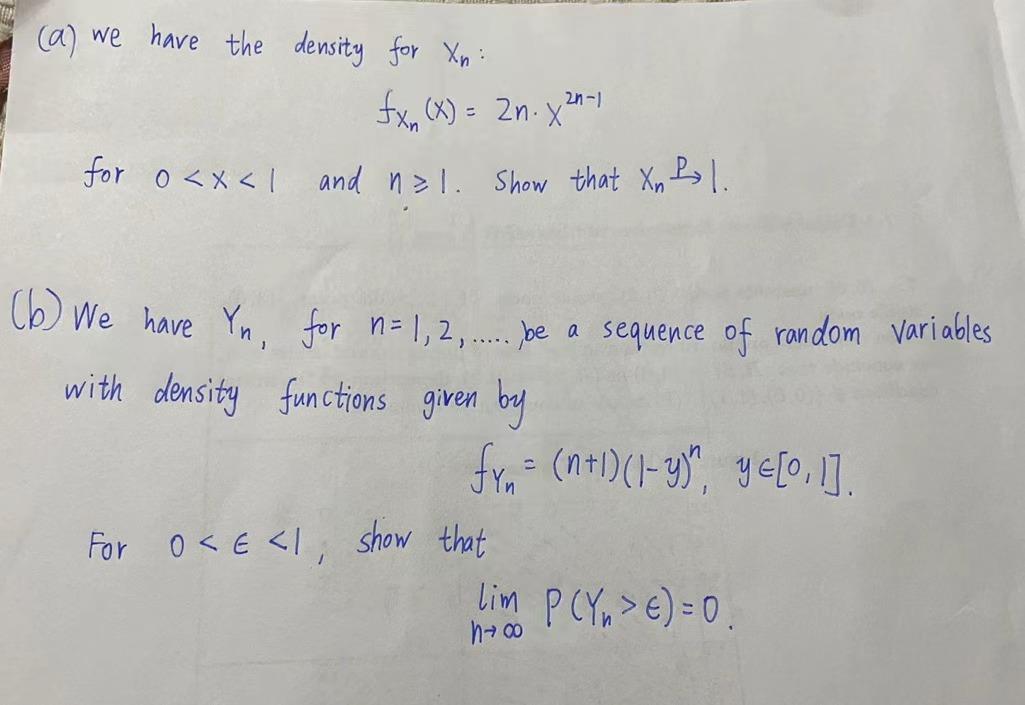 (a) we have the density for Xₙ:
f_{Xₙ}(x) = 2n·x^{2n-1}
for 0 < x < 1 and n ≥ 1. Show that Xₙ →ᴾ 1.
(b) We have Yₙ, for n=1,2,....., be a sequence of random variables
with density functions given by
f_{Yₙ} = (n+1)(1-y)ⁿ, y∈[0,1].
For 0 < ϵ < 1, show that
lim_{n→∞} P(Yₙ > ϵ) = 0.